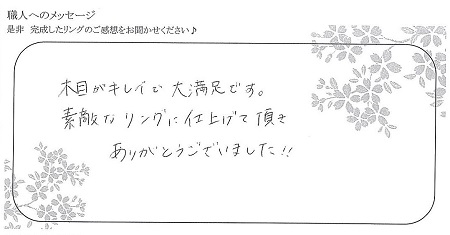 職人へのメッセージ
是非 完成したリングのご感想をお聞かせください♪
木目がキレイで大満足です。
素敵なリングに仕上げて頂き
ありがとうございました!!